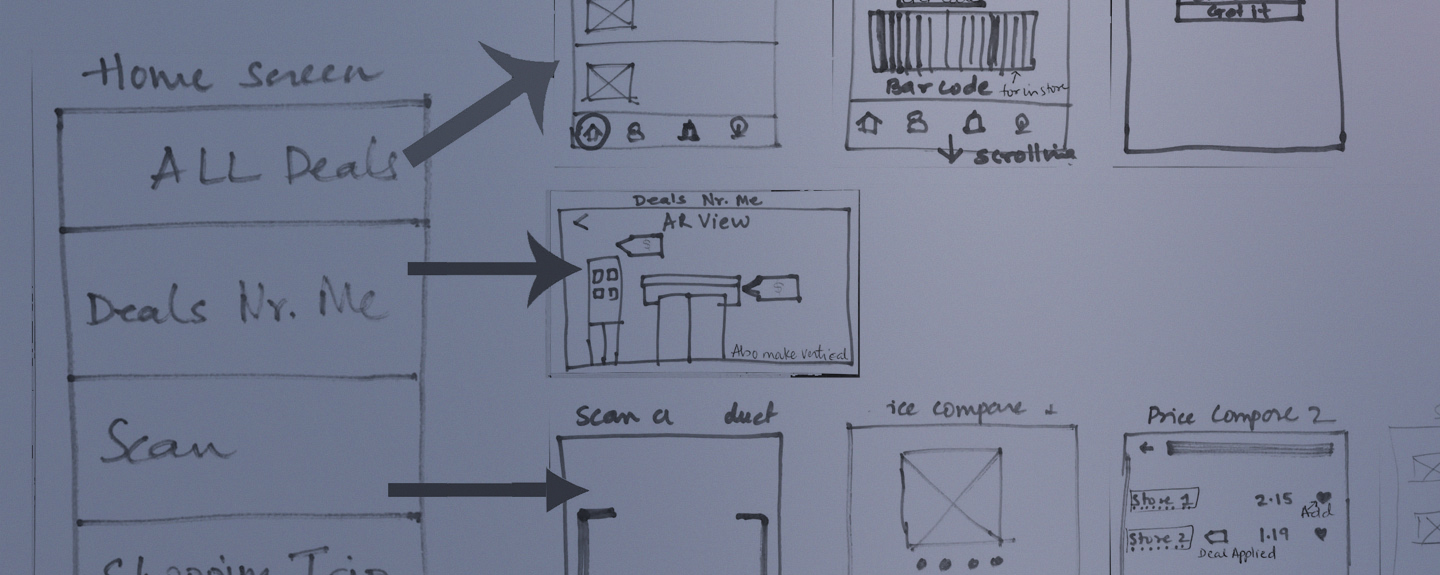 Home screen
ALL Deals
Deals Nr. Me
Scan
Shopping Trip
Barcode
for instore
scrolling
Got it
Deals Nr. Me
AR View
Also make vertical
Scan a duct
ice compare
Price Compare 2
Store 1 2.15
Add
Store 2 1.19
Deal Applied